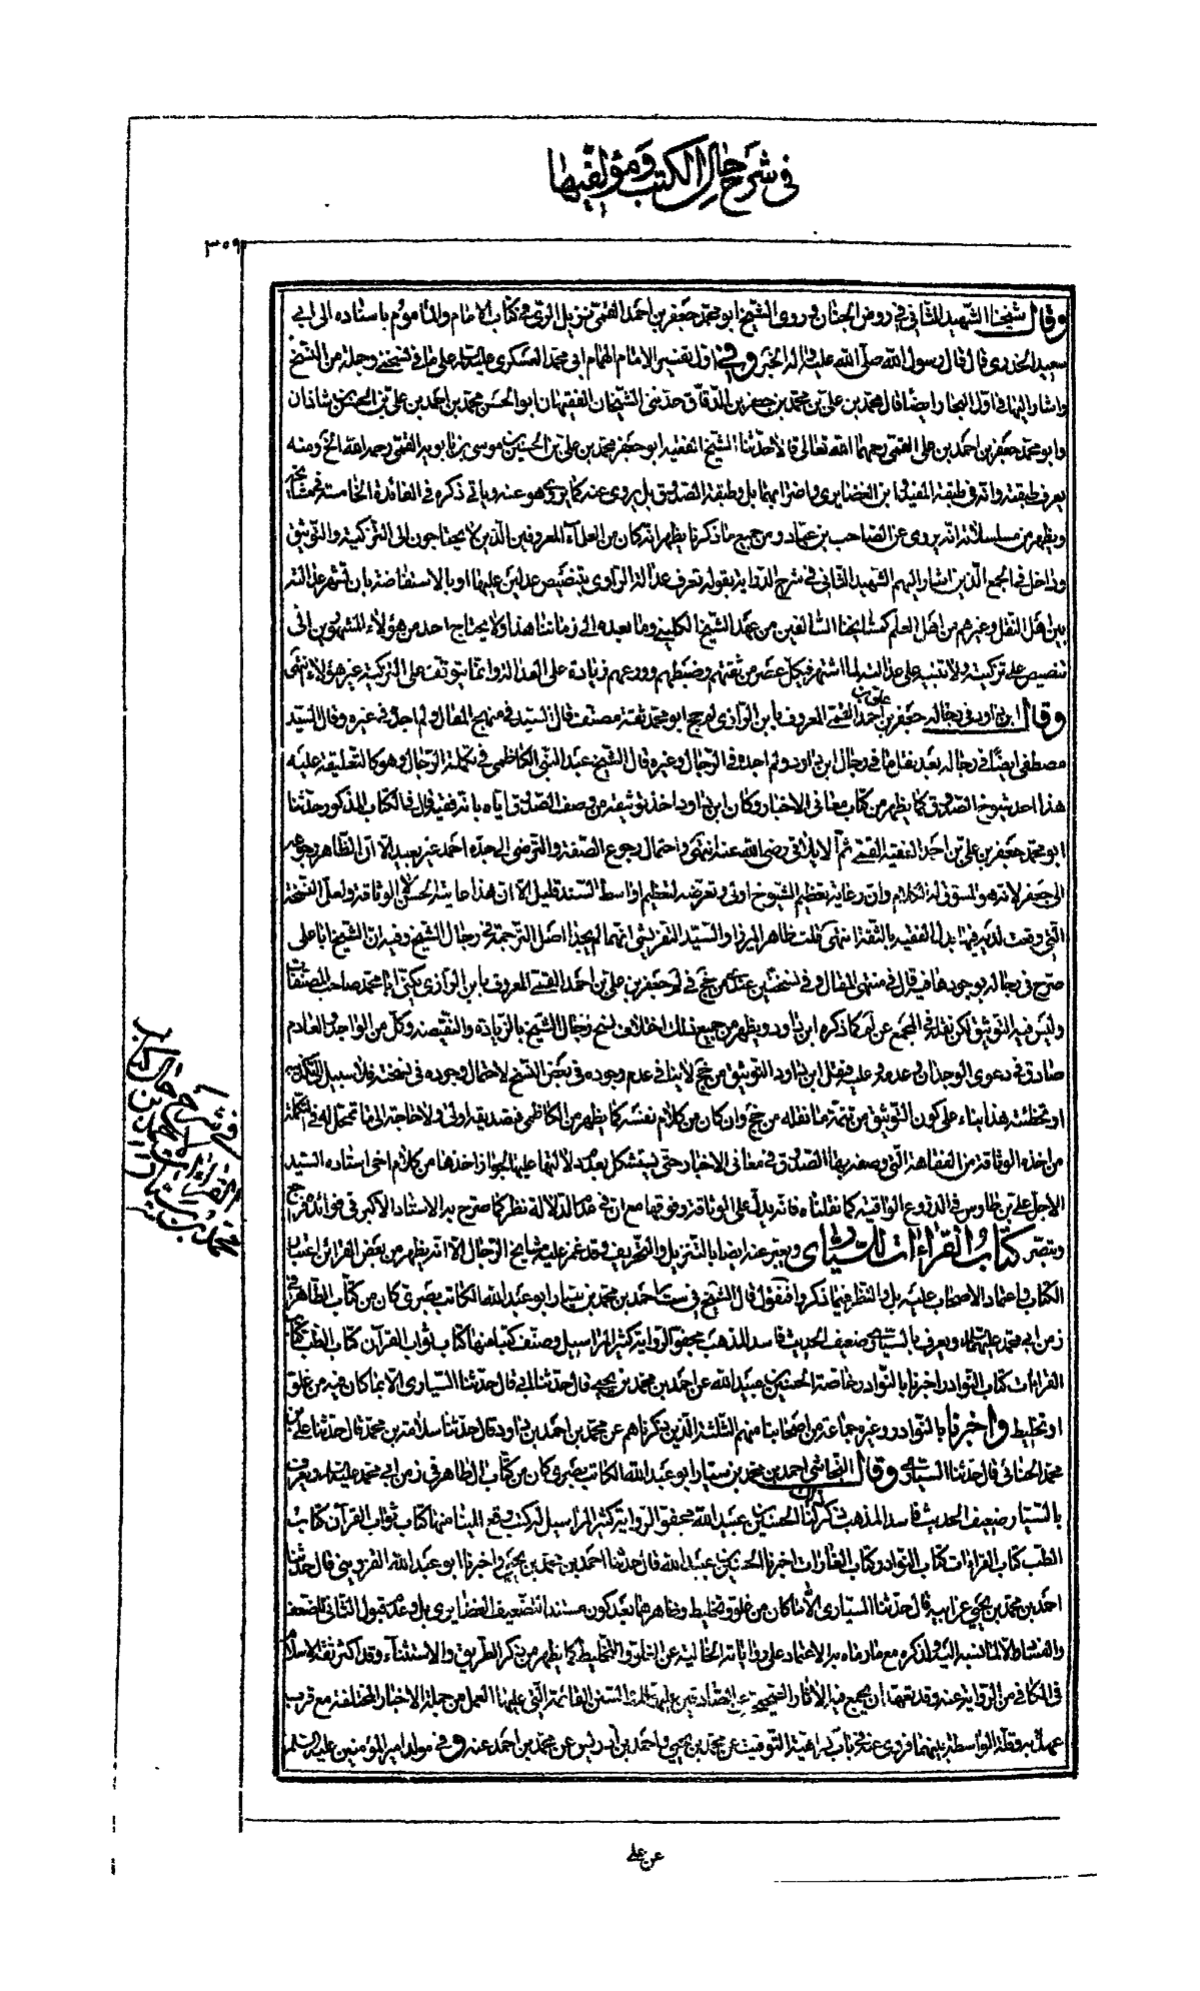 في شرح حال الكتب ومؤلفيها
٣٠٩
وقال شيخنا الشهيد الثاني في روض الجنان وروى الشيخ ابو محمد جعفر بن احمد القمي نزيل الري في كتاب الامام والمأموم باسناده الى ابي
سعيد الخدري قال قال رسول الله صلى الله عليه واله الخبر وفي اول تفسير الامام الهمام ابي محمد العسكري عليه السلام على ما في نسختي وجملة من النسخ
واشار اليها في اول البحار ايضا قال محمد بن علي بن محمد بن جعفر بن الدقاق حدثني الشيخان الفقيهان ابو الحسن محمد بن احمد بن علي بن الحسن بن شاذان
وابو محمد جعفر بن احمد بن علي القمي رحمهما الله تعالى قالا حدثنا الشيخ الفقيه ابو جعفر محمد بن علي بن الحسين بن موسى بن بابويه القمي رحمه الله الخ ومنه
يعرف طبقته وانه في طبقة المفيد وابن الغضايري واضرابهما بل وطبقة الصدوق بل يروى عنه كما يروي هو عنه وياتي ذكره في الفائدة الخامسة في مشايخه
ويظهر من مسلسلاته انه يروي عن الصاحب بن عباد ومن جميع ما ذكرنا يظهر انه كان من العلماء المعروفين الذين لا يحتاجون الى التزكية والتوثيق
وداخل في الجمع الذين اشار اليهم الشهيد الثاني في شرح الدراية بقوله تعرف عدالة الراوي بتنصيص عدلين عليها او بالاستفاضة بان تشتهر عدالته
بين اهل النقل وغيرهم من اهل العلم كمشايخنا السالفين من عهد الشيخ الكليني وما بعده الى زماننا هذا ولا يحتاج احد من هؤلاء المشهورين الى
تنصيص على تزكية ولا تنبيه على عدالة لما اشتهر في كل عصر من ثقتهم وضبطهم وورعهم زيادة على العدالة وانما يتوقف على التزكية غير هؤلاء انتهى
وقال ابن داود في رجاله جعفر بن علي بن احمد القمي المعروف بابن الرازي لم جخ ابو محمد ثقة مصنف قال السيد في منهج المقال ولم اجده في غيره وقال السيد
مصطفى ايضا في رجاله بعد نقل ما في رجال ابن داود ولم اجده في الرجال وغيره قال الشيخ عبد النبي الكاظمي في تكملة الرجال وهو كالتعليقة عليه
هذا احد شيوخ الصدوق كما يظهر من كتاب معاني الاخبار وكان ابن داود اخذ توثيقه من وصف الصدوق اياه بانه فقيه قال في الكتاب المذكور حدثنا
ابو محمد جعفر بن علي بن احمد الفقيه القمي ثم الايلاقي رضي الله عنه انتهى واحتمال رجوع الصفة والترضي الى جده احمد غير بعيد الا ان الظاهر رجوعه
الى جعفر لانه هو المسوق له الكلام وان رعاية تعظيم الشيوخ اولى وتعرضه لتعظيم اواسط السند قليل الا ان هذا غايته الحسن لا الوثاقة ولعل النسخة
التي وقعت لديه فيها بدل الفقيه بالثقة انتهى قلت ظاهر الميرزا والسيد التفريشي انهما لم يجدا اصل الترجمة في رجال الشيخ وفيه ان الشيخ ابا علي
صرح في رجاله بوجودها فيه قال في منتهى المقال وفي نسختين عندي من جخ في لم جعفر بن علي بن احمد القمي المعروف بابن الرازي يكنى ابا محمد صاحب المصنفات
وليس فيه التوثيق لكن نقله في المجمع عن لم كما ذكره ابن داود ويظهر من جميع ذلك اختلاف نسخ رجال الشيخ بالزيادة والنقيصة وكل من الواجد والعادم
صادق في دعوى الوجدان وعدمه وعليه فنقل ابن داود التوثيق من جخ لا ينافي عدم وجوده في بعض النسخ لاحتمال وجوده في نسخته فلا سبيل الى تكذيبه
او تخطئته هذا بناء على كون التوثيق من تتمة ما نقله من جخ وان كان من كلام نفسه كما يظهر من الكاظمي فتصديقه اولى ولا حاجة الى ما تمحل له في التكملة
من اخذه الوثاقة من الفقاهة التي وصفه بها الصدوق في معاني الاخبار حتى يستشكل بعدم دلالتها عليها لجواز اخذها من كلام اخي استاده السيد
الاجل علي بن طاوس في الدروع الواقية كما نقلناه فانه يدل على الوثاقة وفوقها مع ان في عدم الدلالة نظر كما صرح به الاستاد الاكبر في فوائده فراجع
وتبصر كتاب القراءات للسياري ويعبر عنه ايضا بالتنزيل والتحريف وقد غمز عليه مشايخ الرجال الا انه يظهر من بعض القرائن اعتبار
الكتاب واعتماد الاصحاب عليه بل والنظر فيما ذكروا فنقول قال الشيخ في ست احمد بن محمد بن سيار ابو عبد الله الكاتب بصري كان من كتاب الطاهر في
زمن ابي محمد عليه السلام ويعرف بالسياري ضعيف الحديث فاسد المذهب مجفو الرواية كثير المراسيل وصنف كتبا منها كتاب ثواب القرآن كتاب الطب كتاب
القراءات كتاب النوادر اخبرنا بالنوادر خاصة الحسين بن عبيد الله عن احمد بن محمد بن يحيى قال حدثنا ابي قال حدثنا السياري الا بما كان فيه من غلو
او تخليط واخبرنا بالنوادر وغيره جماعة من اصحابنا منهم الثلثة الذين ذكرناهم عن محمد بن احمد بن داود قال حدثنا سلامة بن محمد قال حدثنا علي بن
محمد الحنائي قال حدثنا السياري وقال النجاشي احمد بن محمد بن سيار ابو عبد الله الكاتب بصري كان من كتاب الطاهر في زمن ابي محمد عليه السلام ويعرف
بالسياري ضعيف الحديث فاسد المذهب ذكر ذلك لنا الحسين بن عبيد الله مجفو الرواية كثير المراسيل له كتب وقع الينا منها كتاب ثواب القرآن كتاب
الطب كتاب القراءات كتاب النوادر وكتاب الغارات اخبرنا الحسين بن عبيد الله قال حدثنا احمد بن محمد بن يحيى واخبرنا ابو عبد الله القزويني قال حدثنا
احمد بن محمد بن يحيى عن ابيه قال حدثنا السياري الا ما كان من غلو وتخليط وظاهرهما بعد كون مستندهما تضعيف الغضايري بل وعدم قبول الثاني الضعف
والفساد الا لما نسبه اليه ولذكره مع ما رماه به الاعتماد على رواياته الخالية عن الغلو والتخليط كما يظهر من ذكر الطريق والاستثناء وقد اكثر ثقة الاسلام
في الكافي من الرواية عنه وقد تعهد ان يجمع فيه الاثار الصحيحة عن الصادقين عليهم السلام والسنن القائمة التي عليها العمل من جملة الاخبار المختلفة مع قرب
عهده به وقلة الواسطة بينهما فروى عنه في باب كراهية التوقيت عن محمد بن يحيى واحمد بن ادريس عن محمد بن احمد عنه وفي مولد امير المؤمنين عليه السلام
في شرح حال كتاب
القراءات لاحمد بن
محمد بن سيار
عن علي